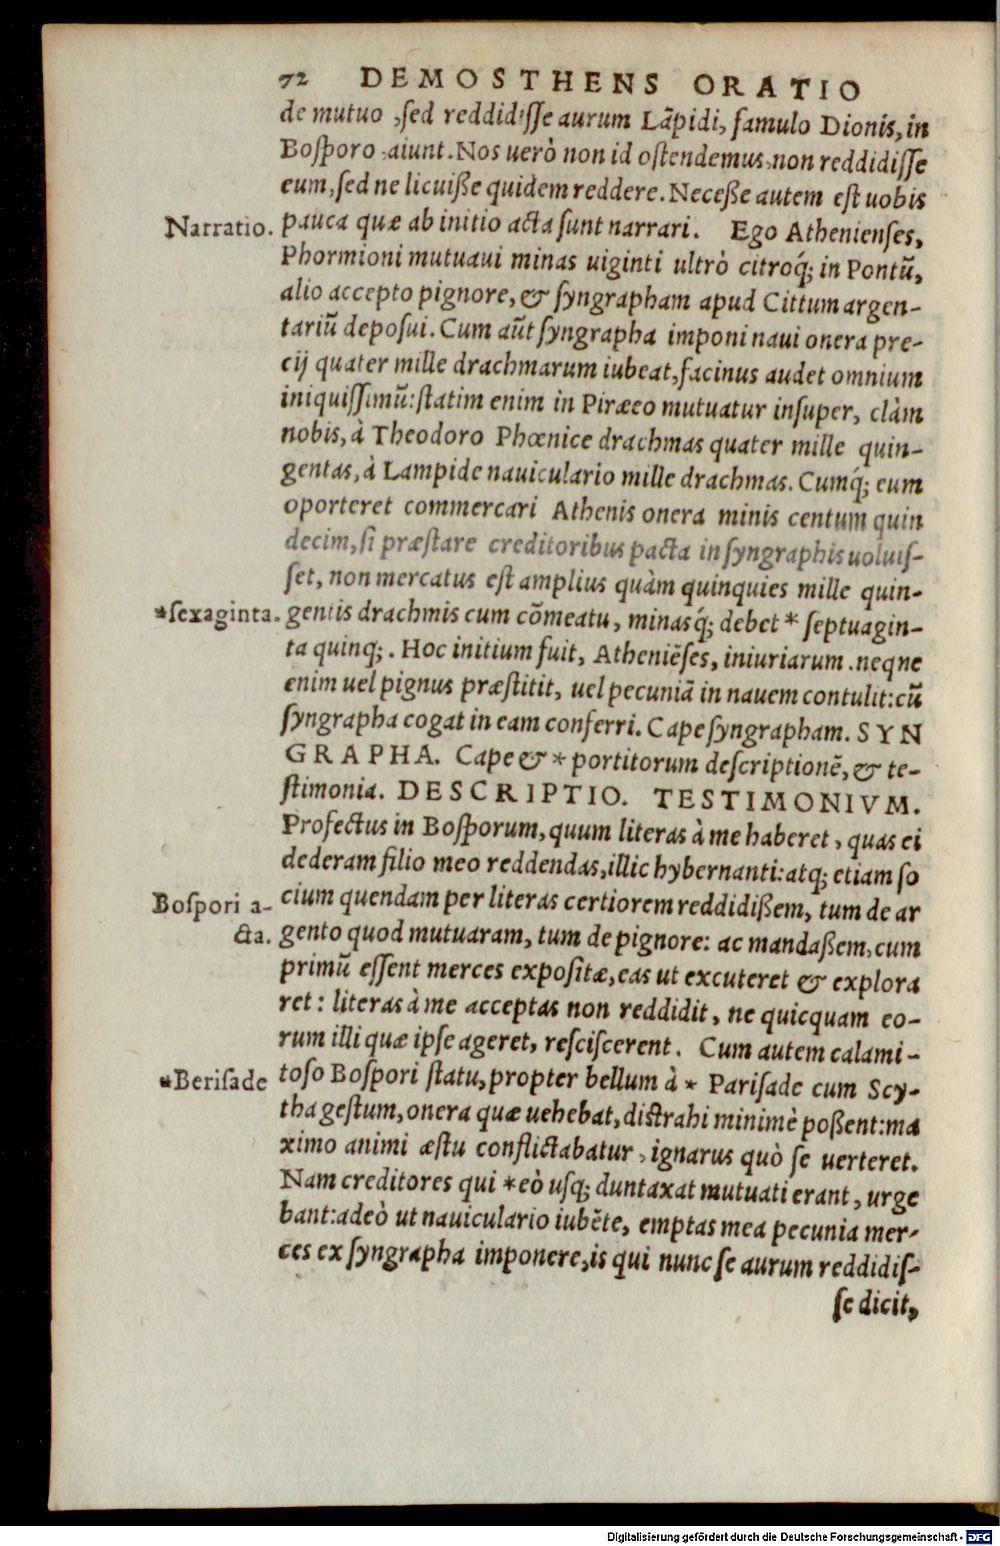 72 DEMOSTHENS ORATIO
de mutuo, sed reddidisse aurum Lāpidi, famulo Dionis, in
Bosporo aiunt. Nos uerò non id ostendemus, non reddidisse
eum, sed ne licuisse quidem reddere. Necesse autem est uobis
Narratio. pauca quæ ab initio acta sunt narrari. Ego Athenienses,
Phormioni mutuaui minas uiginti ultrò citroq́; in Pontū,
alio accepto pignore, & syngrapham apud Cittum argen-
tariū deposui. Cum aūt syngrapha imponi naui onera pre-
cij quater mille drachmarum iubeat, facinus audet omnium
iniquissimū: statim enim in Piræeo mutuatur insuper, clàm
nobis, à Theodoro Phœnice drachmas quater mille quin-
gentas, à Lampide nauiculario mille drachmas. Cumq́; eum
oporteret commercari Athenis onera minis centum quin
decim, si præstare creditoribus pacta in syngraphis uoluis-
set, non mercatus est amplius quàm quinquies mille quin-
*sexaginta. gentis drachmis cum cōmeatu, minasq́; debet * septuagin-
ta quinq;. Hoc initium fuit, Atheniēses, iniuriarum. neqne
enim uel pignus præstitit, uel pecuniā in nauem contulit: cū
syngrapha cogat in eam conferri. Cape syngrapham. SYN
GRAPHA. Cape & * portitorum descriptionē, & te-
stimonia. DESCRIPTIO. TESTIMONIVM.
Profectus in Bosporum, quum literas à me haberet, quas ei
dederam filio meo reddendas, illic hybernanti: atq; etiam so
Bospori a- cium quendam per literas certiorem reddidissem, tum de ar
cta. gento quod mutuaram, tum de pignore: ac mandassem, cum
primū essent merces expositæ, eas ut excuteret & explora
ret: literas à me acceptas non reddidit, ne quicquam eo-
rum illi quæ ipse ageret, resciscerent. Cum autem calami-
*Berisade toso Bospori statu, propter bellum à * Parisade cum Scy-
tha gestum, onera quæ uehebat, distrahi minimè possent: ma
ximo animi æstu conflictabatur, ignarus quò se uerteret.
Nam creditores qui *eò usq; duntaxat mutuati erant, urge
bant: adeò ut nauiculario iubēte, emptas mea pecunia mer-
ces ex syngrapha imponere, is qui nunc se aurum reddidis-
se dicit,
Digitalisierung gefördert durch die Deutsche Forschungsgemeinschaft - DFG